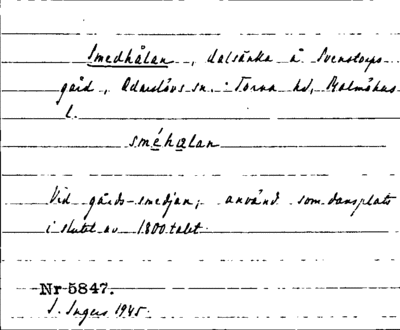 Smedhålan, dalsänka å Svenstorps
gård, Odarslövs sn. Torna hd, Malmöhus
l.
sméhålan
Vid gårds-smedjan; använd som dansplats
i slutet av 1800 talet.
Nr 5847.
I. Ingers 1945.